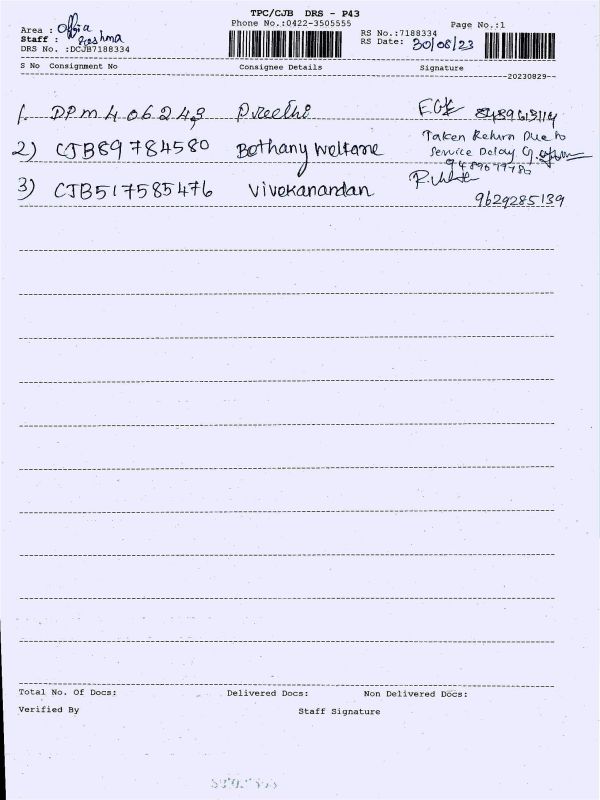 TPC/CJB DRS - P43
Phone No.:0422-3505555
Page No.:1
Area : Office
Staff : Reshma
RS No.:7188334
RS Date: 30/08/23
DRS No. :DCJB7188334
S No Consignment No Consignee Details Signature
20230829
1. DPM406243 Preethi 8489613114
2) CJB89784580 Bethany Welfare Taken Return Due to
Service Delay
9489679780
3) CJB517585476 Vivekanandan
9629285139
Total No. Of Docs: Delivered Docs: Non Delivered Docs:
Verified By Staff Signature